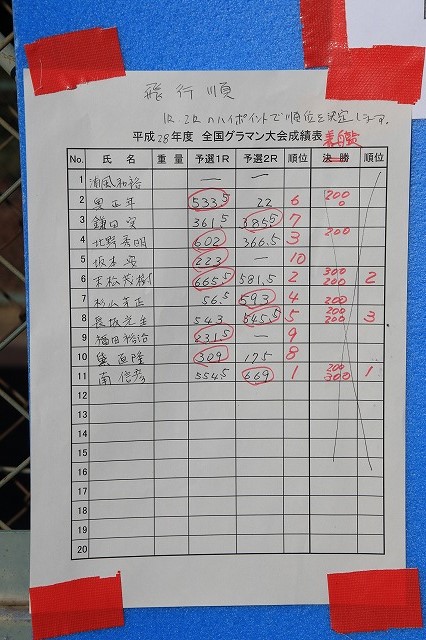 飛行順
1R 2Rのハイポイントで順位を決定します。
平成28年度 全国グラマン大会成績表
No. 氏名 重量 予選1R 予選2R 順位 決勝 順位
1 浦風和裕 — —
2 奥正年 533.5 22 6 200 0
3 鎌田実 361.5 385.5 7
4 北野秀明 602 366.5 3 200
5 坂本実 223 — 10
6 末松茂樹 665.5 581.5 2 300 200 2
7 杉山幸正 56.5 593 4 200
8 長坂光生 543 545.5 5 200 200 3
9 福田裕治 231.5 — 9
10 直隆 309 175 8
11 南信彦 554.5 669 1 200 300 1
12
13
14
15
16
17
18
19
20